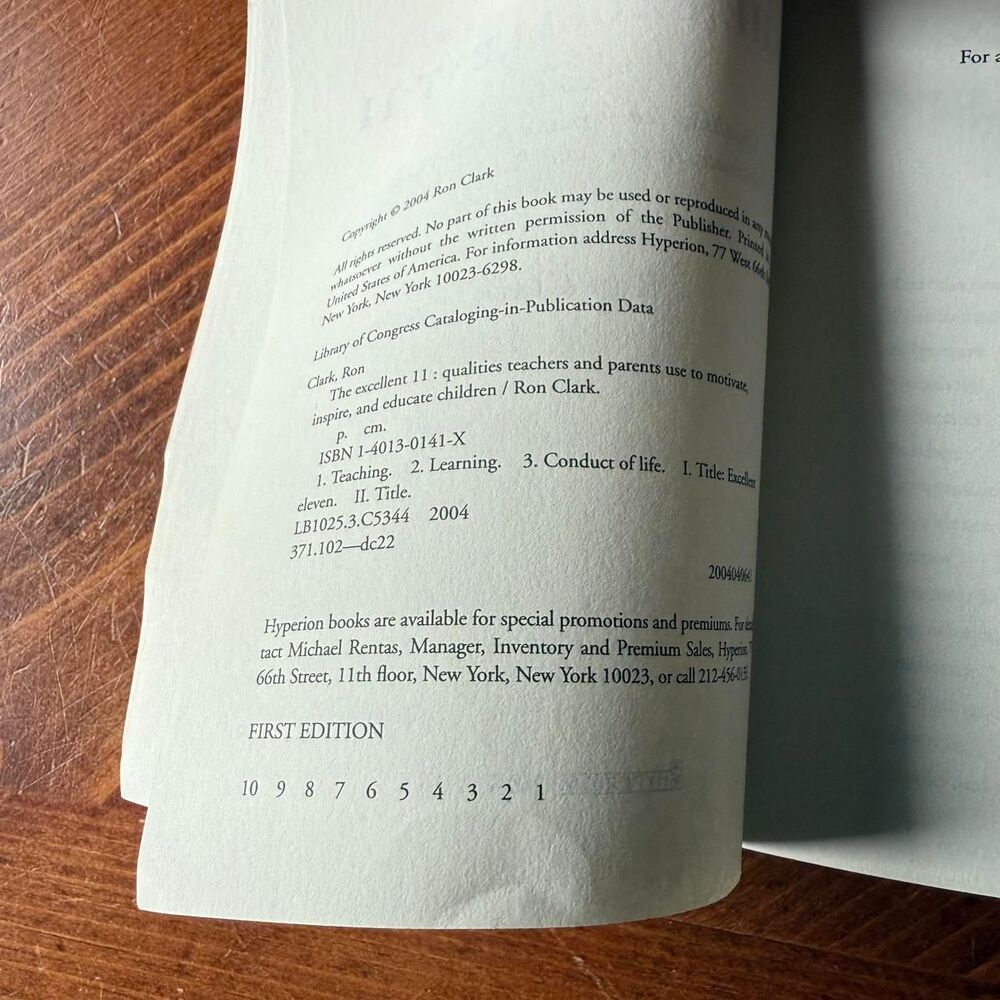 Copyright © 2004 Ron Clark
All rights reserved. No part of this book may be used or reproduced in any
whatsoever without the written permission of the Publisher. Printed
United States of America. For information address Hyperion, 77 West 66th
New York, New York 10023-6298.
Library of Congress Cataloging-in-Publication Data
Clark, Ron
The excellent 11 : qualities teachers and parents use to motivate,
inspire, and educate children / Ron Clark.
p. cm.
ISBN 1-4013-0141-X
1. Teaching. 2. Learning. 3. Conduct of life. I. Title: Excellent
eleven. II. Title.
LB1025.3.C5344 2004
371.102—dc22
Hyperion books are available for special promotions and premiums. For
tact Michael Rentas, Manager, Inventory and Premium Sales, Hyperion,
66th Street, 11th floor, New York, New York 10023, or call
FIRST EDITION
10 9 8 7 6 5 4 3 2 1
For a